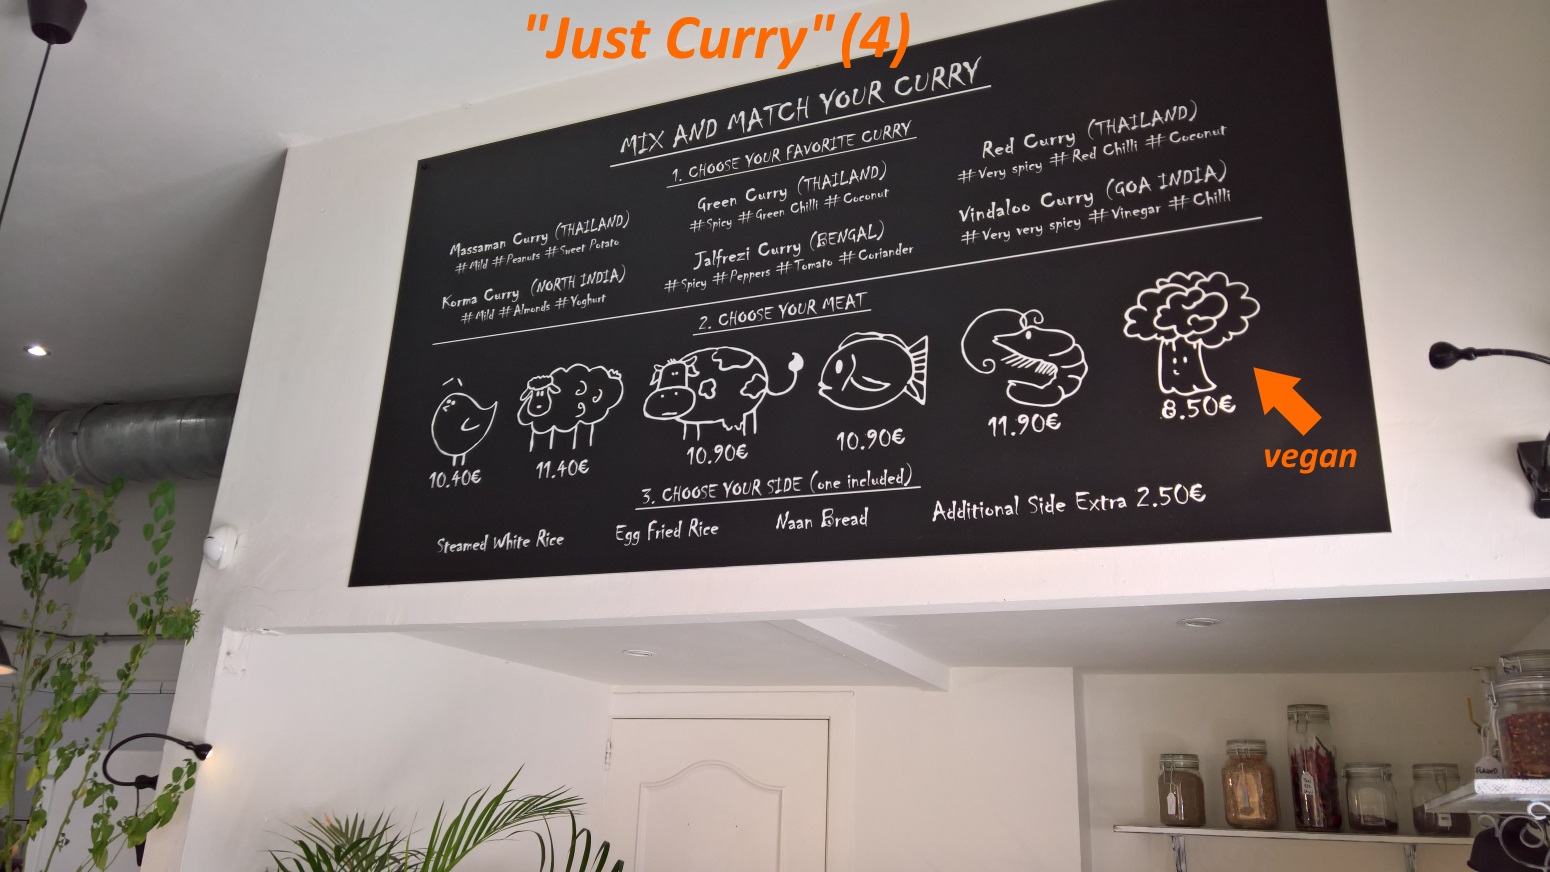 "Just Curry" (4)
MIX AND MATCH YOUR CURRY
1. CHOOSE YOUR FAVORITE CURRY
Massaman Curry (THAILAND)
# Mild # Peanuts # Sweet Potato
Green Curry (THAILAND)
# Spicy # Green Chilli # Coconut
Red Curry (THAILAND)
# Very spicy # Red Chilli # Coconut
Korma Curry (NORTH INDIA)
# Mild # Almonds # Yoghurt
Jalfrezi Curry (BENGAL)
# Spicy # Peppers # Tomato # Coriander
Vindaloo Curry (GOA INDIA)
# Very very spicy # Vinegar # Chilli
2. CHOOSE YOUR MEAT
10.40€
11.40€
10.90€
10.90€
11.90€
8.50€
vegan
3. CHOOSE YOUR SIDE (one included)
Steamed White Rice
Egg Fried Rice
Naan Bread
Additional Side Extra 2.50€